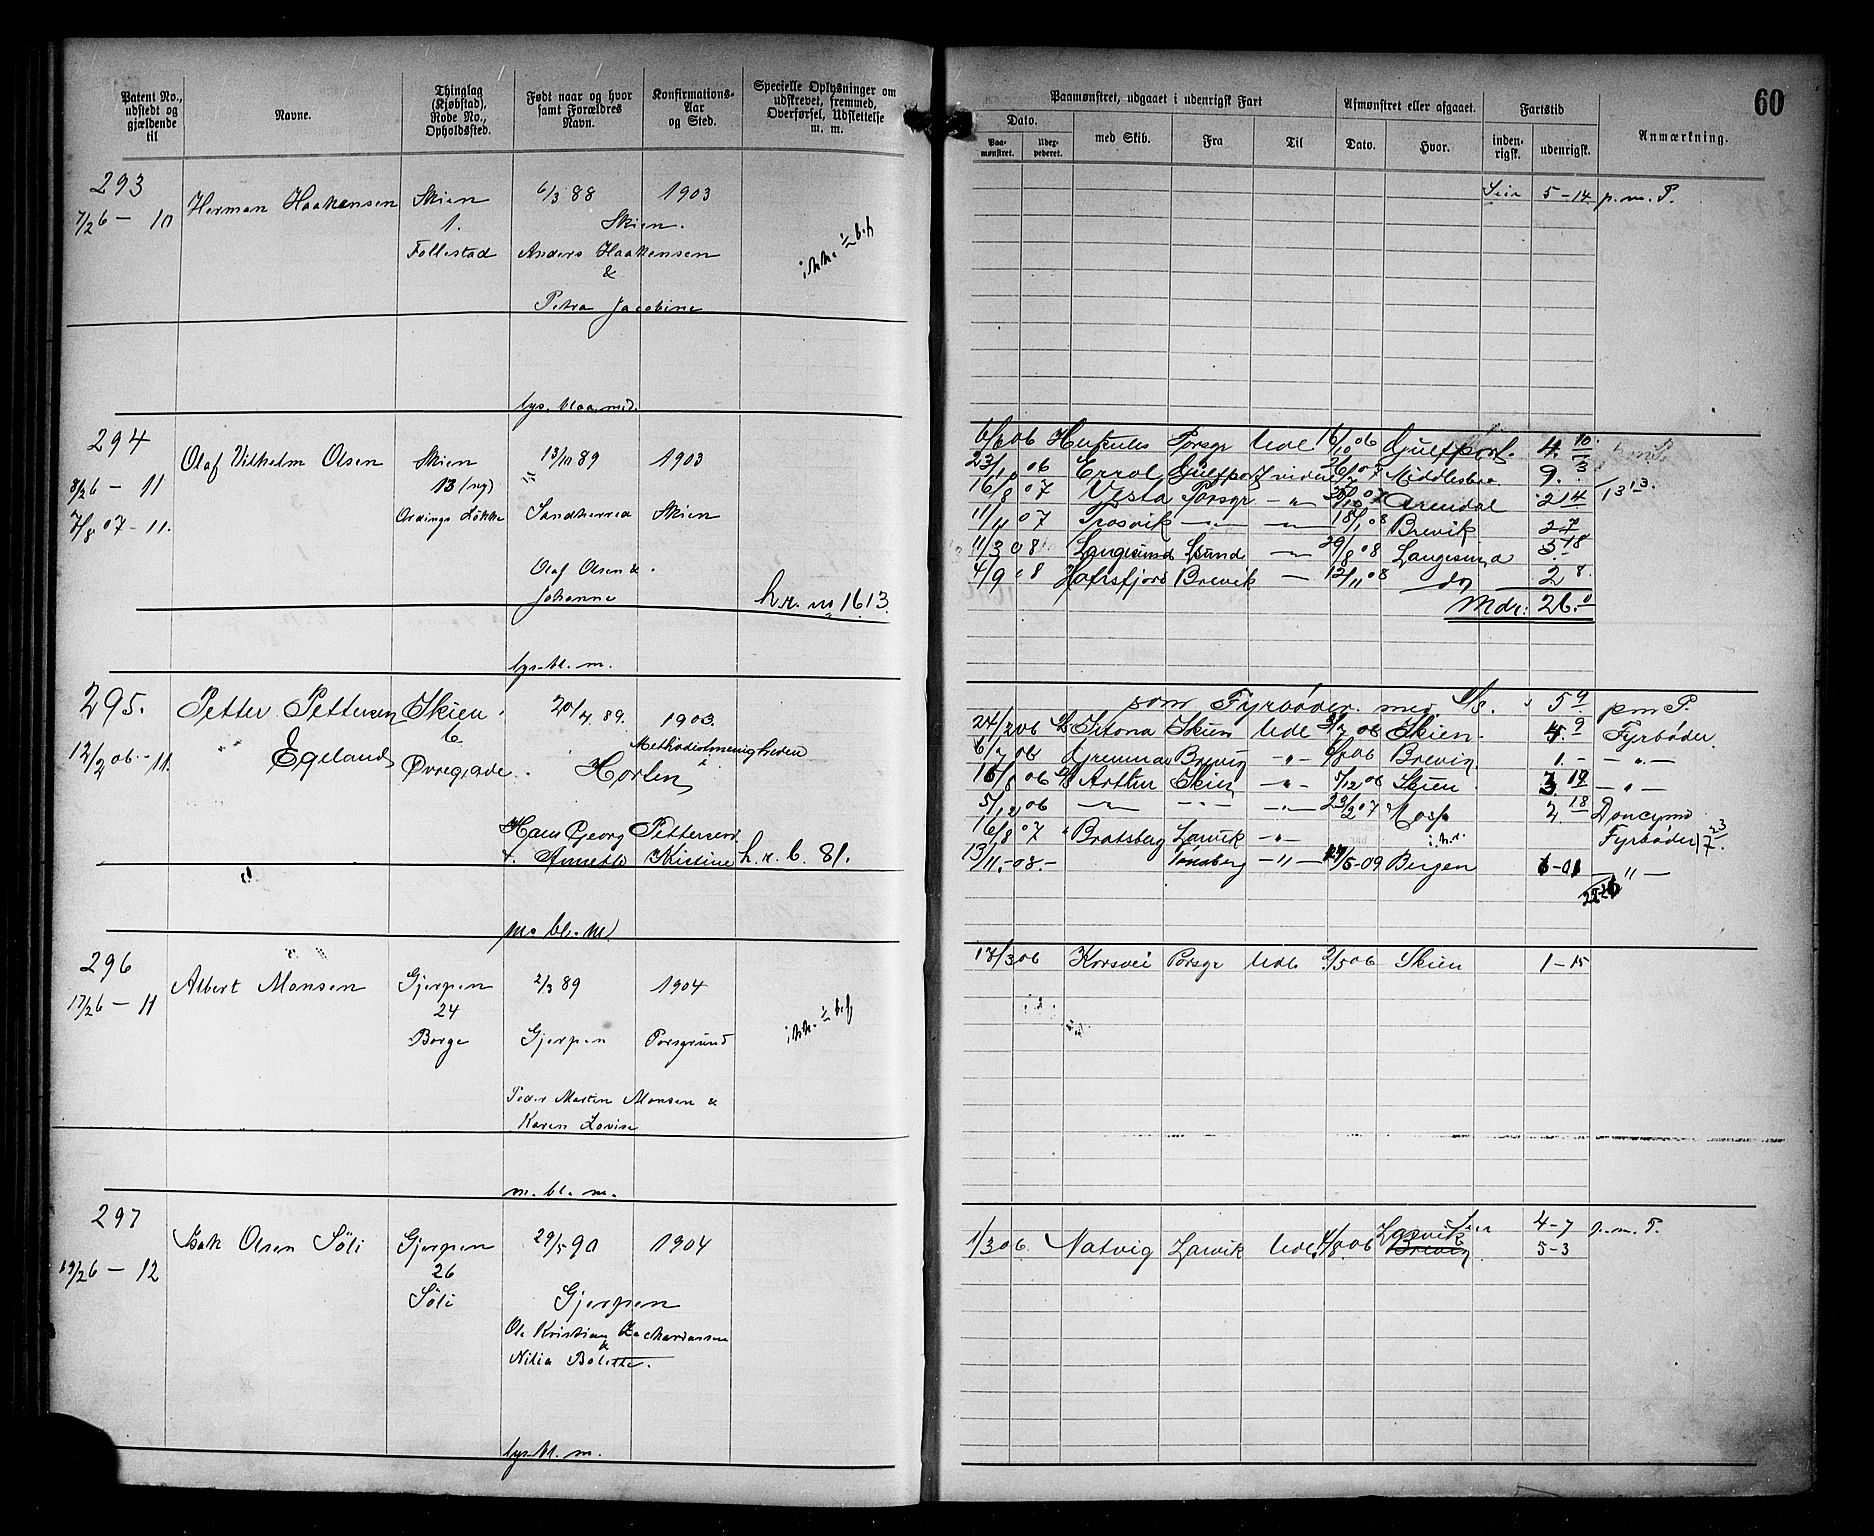 60
Patent No., udstedt og gjældende til
Navne.
Thinglag (Kjøbstad), Rode No., Opholdssted.
Født naar og hvor samt Forældres Navn.
Konfirmations-Aar og Sted.
Specielle Oplysninger om udskrevet, fremmed, Overførsel, Udslettelse m. m.
Paamønstret, udgaaet i udenrigsk Fart
Afmønstret eller afgaaet.
Fartstid
Anmærkning.
Dato.
Paa-mønstret.
Udex-pederet.
med Skib.
Fra
Til
Dato.
Hvor.
inden-rigsk.
udenrigsk.
293 Herman Haakensen Skien 6/3 88 1903
7/2 6 — 10 1. Skien.
Follestad Anders Haakensen
&
Petra Jacobine
5-14 p.m.P.
lys. blaa. mid.
294 Olaf Vilhelm Olsen Skien 13/10 89 1903
8/2 6 — 11 13 (ny)
7/8 07 — 11. Ordings Løkke Sandherred Skien
Olaf Olsen &
Johanne h.r. no 1613.
06 Herkules Porsgr Ude 16/10 06 Gulfport. 4. 10.
23/10 06 Errol Gulfport videre 07 Middlesbro 9. 3
16/8 07 Vesta Porsgr — " 07 Arendal 2 14 13 13.
11/11 07 Trosvik — " — — " — 18/1 08 Brevik 2 7
11/3 08 Langesund Lsund — " — 29/8 08 Langesund 5 18
4/9 08 Hafrsfjord Brevik — 12/11 08 do 2 8.
Mdr: 26. 0
lys. bl. m.
295. Petter Pettersen Skien 20/4 89. 1903.
12/2 06 — 11. Egeland 6 Methodistmenigheden
Øvregade. Horten i
Hans Georg Pettersen
& Annette Kristine h. r. b. 81.
som Fyrbøder med 5 9 pm P.
24/2 06 Skien Ude 7 06 Skien. 9 Fyrbøder.
6/7 06 Grenmar Brevig — " — 06 Brevig 1. — — " —
16/8 06 Arthur Skien — " — 5/12 06 Skien. 3. — " —
5/12 06 — " — — " — — " — 23/2 07 Moss 2. 18 Donkeym
16/8 07 Bratsberg Larvik — " — Fyrbøder 7. 23
13/11. -08. - Tønsberg — " — /5-09 Bergen — " —
m. bl. m
296 Albert Monsen Gjerpen 2/3 89 1904
17/2 6 — 11 24
Borge Gjerpen Porsgrund
Peder Martin Monsen &
Karen Lovise
17/3 06 Korsvei Porsgr Ude 9/5 06 Skien 1 - 15
m. bl. m.
297 Isak Olsen Søli Gjerpen 29/5 90 1904
19/2 6 — 12 26
Søli Gjerpen
Ole Kristian Zachariassen
&
Nilia Bolette.
4 - 7 p.m.P.
1/3 06. Natvig Larvik Ude. 4/8 06 Larvik Brevig 5 - 3
lys. bl. m.